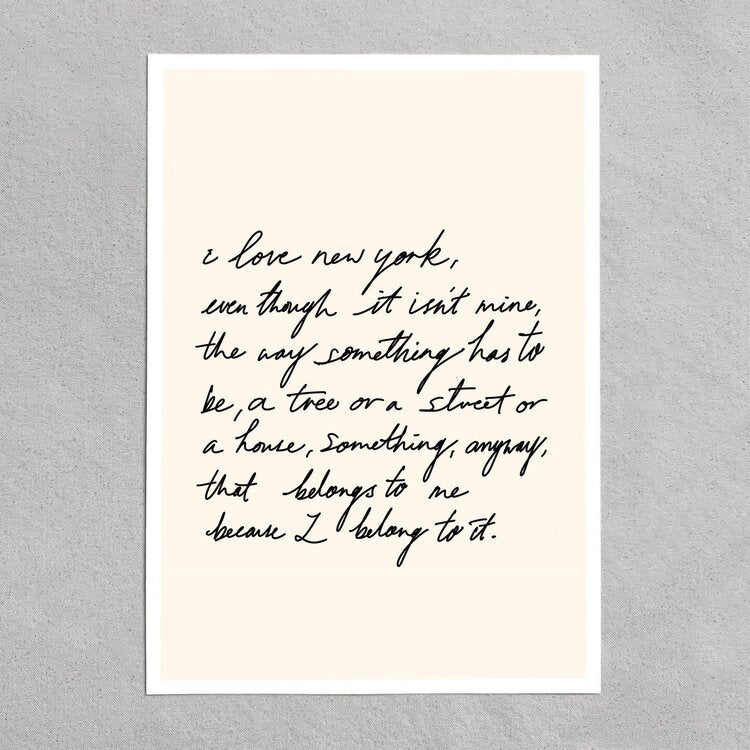 i love new york,
even though it isn't mine,
the way something has to
be, a tree or a street or
a house, something, anyway,
that belongs to me
because I belong to it.